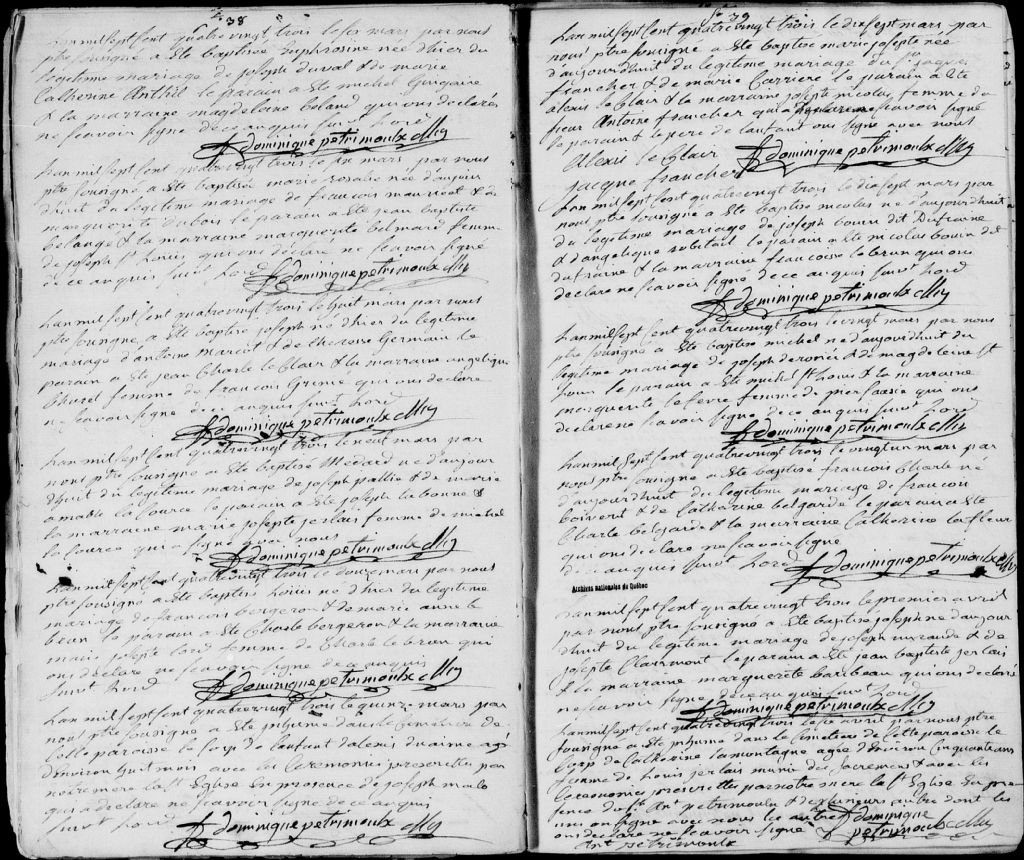 38
Lan mil sept sent quatre vingt trois le six mars par nous
ptre sousigne a Ete baptisee Euphrosine née d'hier du
legetime mariage de joseph duval & de marie
Catherine Anthil le parain a Ete michel
& la marraine magdelaine beland qui ons declares
ne scavoir signe de ce anquis suivt lord
f dominique petrimoulx Miss
Lan mil sept sent quatre vingt trois le mars par nous
ptre sousigne a Ete baptisée marie rosalie née d'aujour
dhuit du legetime mariage de francois & de
marguerite dubois le parain a Ete jean baptiste
belange & la marraine marguerite femme
de joseph St Louis qui ons déclaré ne scavoir signé
de ce anquis suivt lord
f dominique petrimoulx Miss
Lan mil sept sent quatre vingt trois le huit mars par nous
ptre sousigne a Ete baptise joseph né d'hier du legetime
mariage d'antoine marcot & de therese Germain le
parain a Ete jean Charle le Clair & la marraine angelique
femme de francois qui ons declare
ne scavoir signe de ce anquis suivt lord
f dominique petrimoulx Miss
Lan mil sept sent quatre vingt trois le neuf mars par
nous ptre sousigne a Ete baptise Medard ne d'aujour
dhuit du legetime mariage de joseph & de marie
amable le parain a Ete joseph &
la marraine marie josepte jerlais femme de michel
qui a signe avec nous
f dominique petrimoulx Miss
Lan mil sept sent quatre vingt trois le douze mars par nous
ptre sousigne a Ete baptise Louis ne d'hier du legetime
mariage de francois bergeron & de marie anne le
beau le parain a Ete Charle bergeron & la marraine
marie josepte lord femme de Charle le brun qui
ons declare ne scavoir signe de ce anquis
suivt lord
f dominique petrimoulx Miss
Lan mil sept sent quatre vingt trois le quinze mars par
nous ptre sousigne a Ete inhume dans le Cimetiere de
Cette paroisse le Corps de lenfant d'alexis agé
d'Environ huit mois avec les Ceremonies prescrittes par
notre mere la St Eglise En presence de joseph malo
qui a declare ne scavoir signe de ce anquis
suivt lord
f dominique petrimoulx Miss
39
Lan mil sept sent quatre vingt trois le dix sept mars par
nous ptre sousigne a Ete baptisé marie josepte née
d'aujourdhuit du legetime mariage du Sr jacques
francher & de marie Carriere le parain a Ete
alexis le Clair & la marraine josepte nicolas femme du
sieur Antoine francher qui a scavoir signé
le parain & le pere de lanfant ons signe avec nous
Alexis le Clair
f dominique petrimoulx Miss
jacque francher
Lan mil sept sent quatre vingt trois le dix sept mars par
nous ptre sousigne a Ete baptise nicolas ne d'aujourdhuit
du legetime mariage de joseph bourn dit Dufraine
& d'angelique le parain a Ete nicolas bourn dit
dufraine & la marraine francoise le brun qui ons
declare ne scavoir signe de ce anquis suivt lord
f dominique petrimoulx Miss
Lan mil sept sent quatre vingt trois le vingt mars par nous
ptre sousigne a Ete baptise michel ne d'aujourdhuit du
legitime mariage de joseph & de magdeleine St
Louis le parain a Ete michel St Louis & la marraine
marguerite le fevre femme de
declare ne scavoir signe de ce anquis suivt lord
f dominique petrimoulx Miss
Lan mil sept sent quatre vingt trois le vingt un mars par
nous ptre sousigne a Ete baptise francois Charle né
d'aujourdhuit du legetime mariage de francois
boisvert & de Catharine belgarde le parain a Ete
Charle belgarde & la marraine Catherine lafleur
qui ons declare ne scavoir signe
de ce anquis suivt lord
f dominique petrimoulx Miss
Archives nationales du Québec
Lan mil sept sent quatre vingt trois le premier avril
par nous ptre sousigne a Ete baptise joseph ne d'aujour
dhuit du legetime mariage de joseph & de
josepte Clairmont le parain a Ete jean baptiste jerlais
& la marraine marguerite baribeau qui ons declaré
ne scavoir signe de ce anquis suivt lord
f dominique petrimoulx Miss
Lan mil sept sent quatre vingt trois le six avril par nous ptre
sousigne a Ete inhume dans le Cimetiere de Cette paroisse le
Corps de Catherine lamontagne agee d'Environ Cinquante ans
femme de Louis jerlais munie des sacremens & avec les
Ceremonies prescrittes par notre mere la St Eglise En pre
sence du Sr Ant petrimoulx & de plusieurs autre dont les
uns on signe avec nous les autre
ons declare ne scavoir signe
f dominique
petrimoulx Miss
Ant petrimoulx